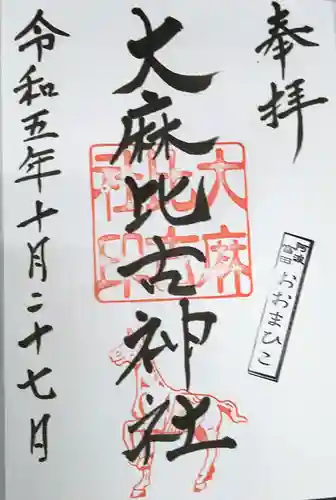 奉拝
大麻比古神社
大麻
比古
社印
阿波
富田
おおまひこ
令和五年十月二十七月